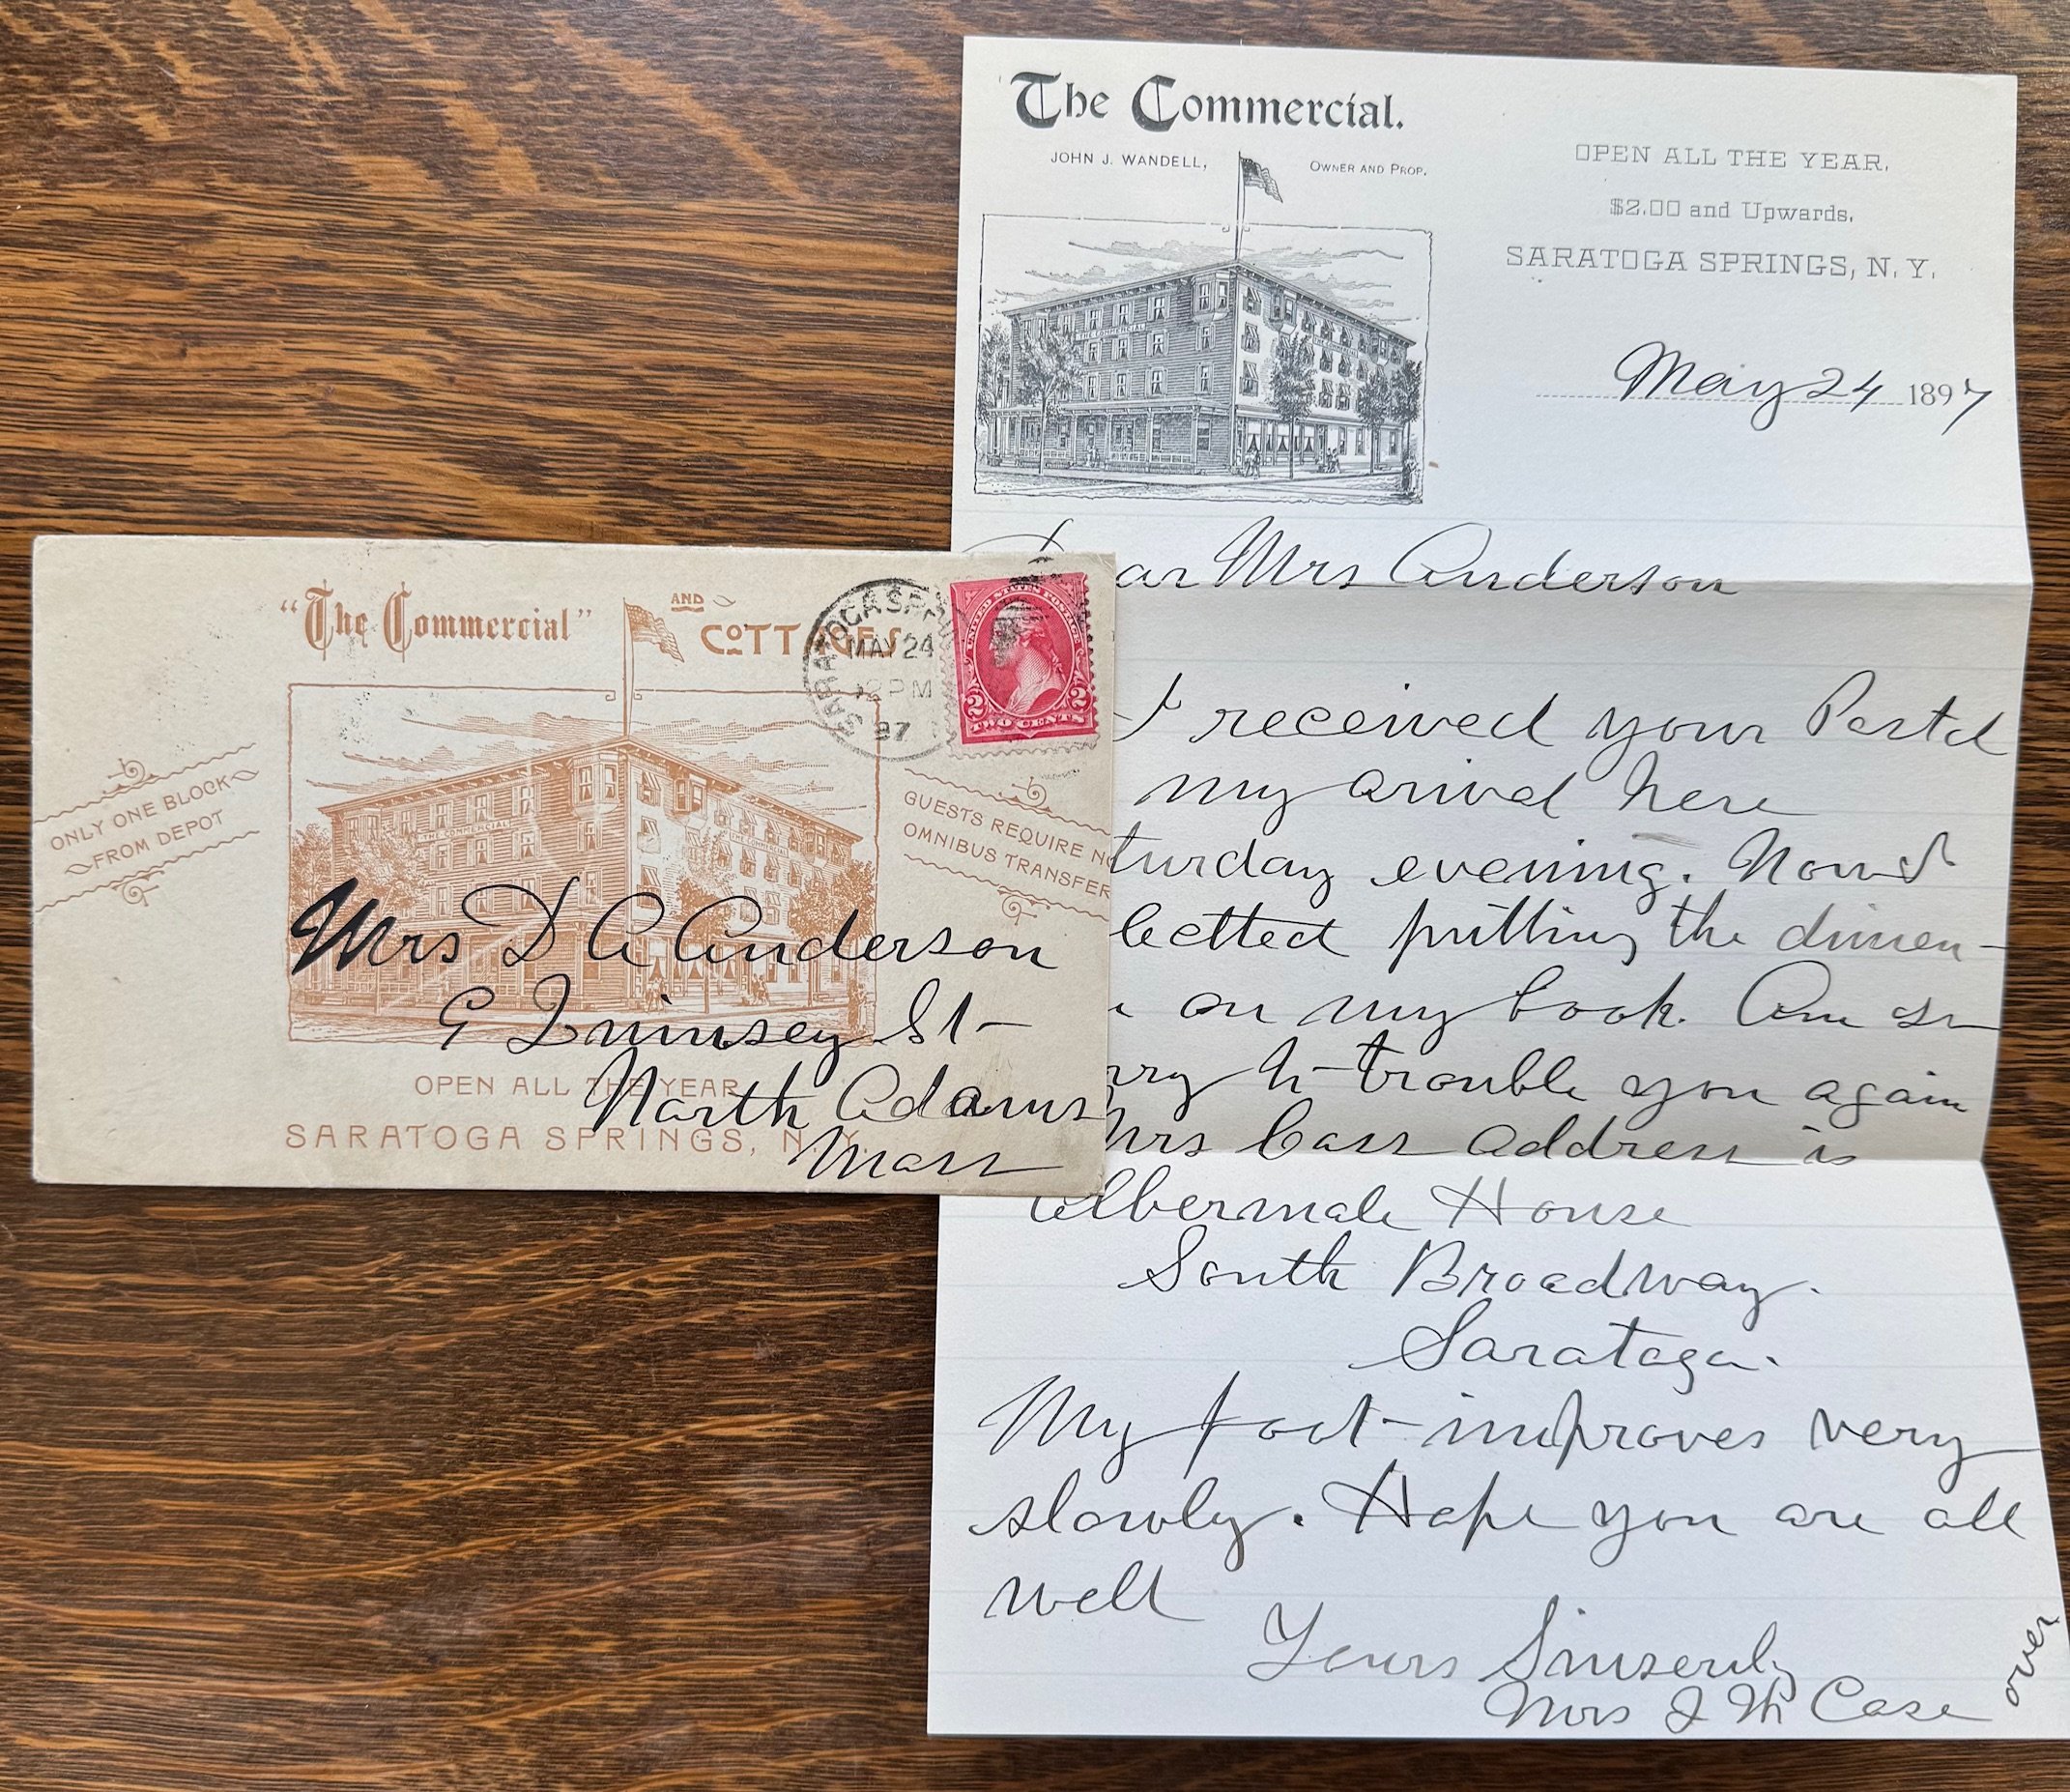 "The Commercial" AND COTTAGES
SARATOGA SPR
MAY 24
2 PM
97
UNITED STATES POSTAGE
2 2
TWO CENTS
ONLY ONE BLOCK
FROM DEPOT
THE COMMERCIAL
GUESTS REQUIRE NO
OMNIBUS TRANSFER
Mrs D A Anderson
E Quinsey St
North Adams
Mass
OPEN ALL THE YEAR
SARATOGA SPRINGS, N. Y.
The Commercial.
JOHN J. WANDELL, OWNER AND PROP.
OPEN ALL THE YEAR.
$2.00 and Upwards.
SARATOGA SPRINGS, N. Y.
THE COMMERCIAL
May 24 1897
ear Mrs Anderson
I received your Postal
my arival here
turday evening.
lected putting the dimen-
on my book. Am so
rry to trouble you again
Mrs Cass address is
Albermale House
South Broadway.
Saratoga.
My foot improves very
slowly. Hope you are all
well
Yours Sincerely
Mrs J W Case
over